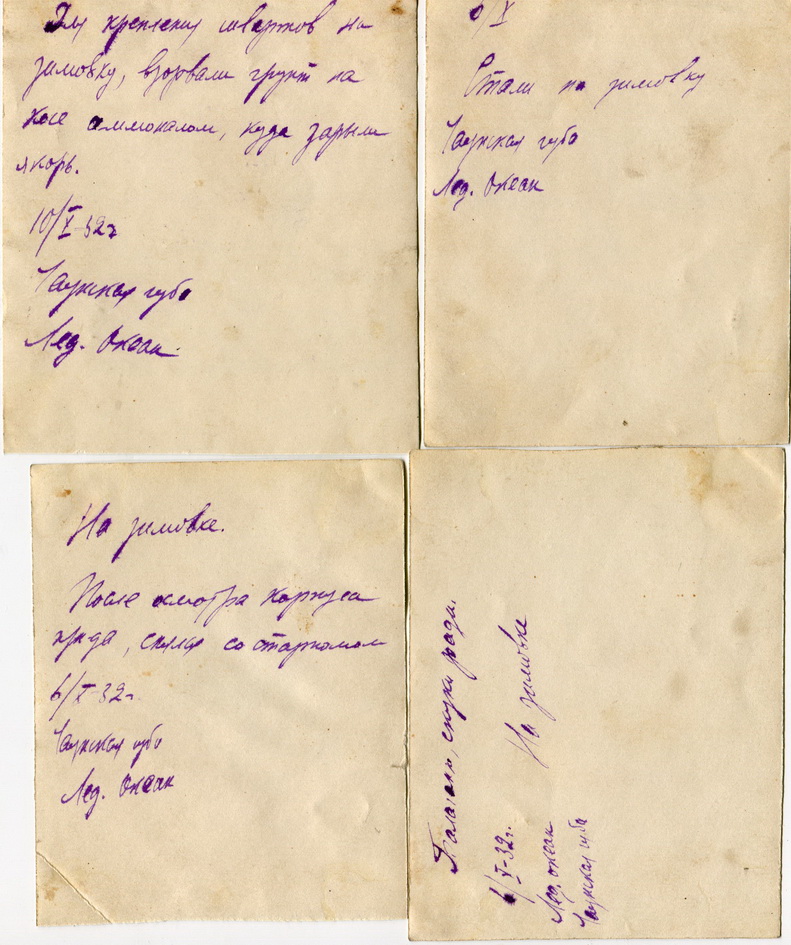 Для крепления швартов на
зимовку, взорвали грунт на
косе аммоналом, куда зарыли
якорь.
10/X-32г
Чаунская губа
Лед. Океан.
/X
Стали на зимовку
Чаунская губа
Лед. Океан
На зимовке.
После осмотра корпуса
судна, снялся со старпомом
6/X-32г.
Чаунская губа
Лед. Океан
скуки ради.
На зимовке
6/X-32г.
Лед. океан
Чаунская губа